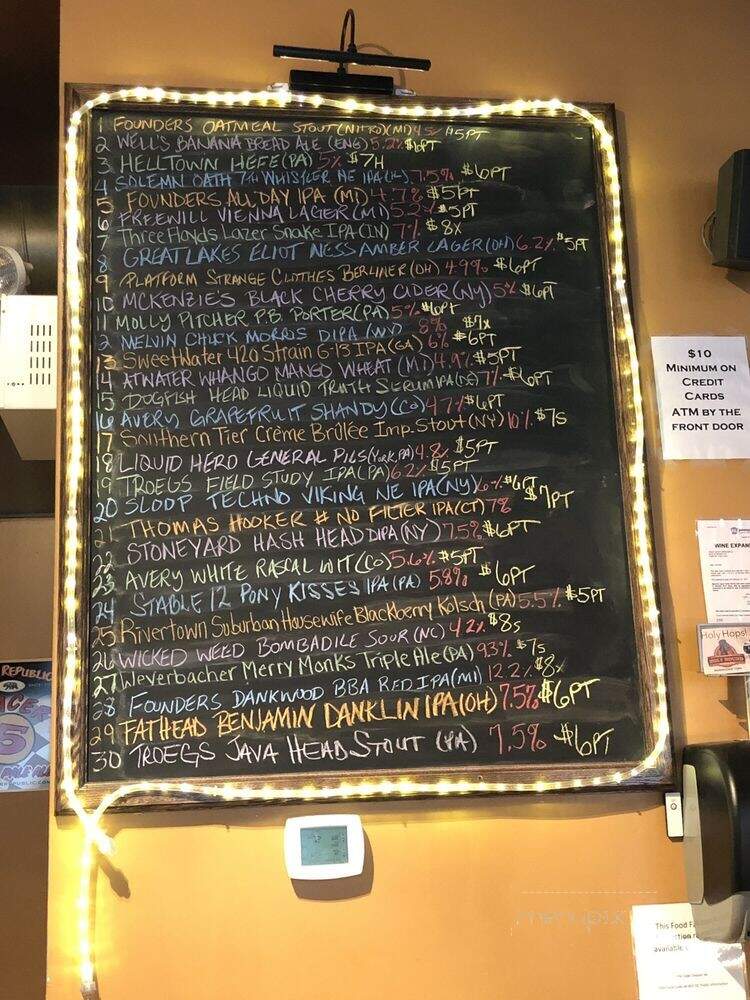 1 FOUNDERS OATMEAL STOUT (NITRO) (MI) 4.5% $5PT
2 WELL'S BANANA BREAD ALE (ENG) 5.2% $6PT
3 HELLTOWN HEFE (PA) 5% $7H
4 SOLEMN OATH 7TH WHISTLER NE IPA (IL) 7.5% $6PT
5 FOUNDERS ALL DAY IPA (MI) 4.7% $5PT
6 FREEWILL VIENNA LAGER (MI) 5.2% $5PT
7 Three Floyds Lazer Snake IPA (IN) 7% $8x
8 GREAT LAKES ELIOT NESS AMBER LAGER (OH) 6.2% $5PT
9 PLATFORM STRANGE CLOTHES BERLINER (OH) 4.9% $6PT
10 MCKENZIE'S BLACK CHERRY CIDER (NY) 5% $6PT
11 MOLLY PITCHER P.B. PORTER (PA) 5% $6PT
2 MELVIN CHUCK MORRIS DIPA (NY) 8% $7x
13 SweetWater 420 Strain G-13 IPA (GA) 6% $6PT
14 ATWATER WHANGO MANGO WHEAT (MI) 4.9% $5PT
15 DOGFISH HEAD LIQUID TRUTH SERUM IPA (DE) 7% $6PT
16 AVERY GRAPEFRUIT SHANDY (CO) 4.7% $6PT
17 Southern Tier Crème Brûlée Imp. Stout (NY) 10% $7s
18 LIQUID HERO GENERAL PILS (York, PA) 4.8% $5PT
19 TROEGS FIELD STUDY IPA (PA) 6.2% $5PT
20 SLOOP TECHNO VIKING NE IPA (NY) 6% $6PT
21 THOMAS HOOKER # NO FILTER IPA (CT) 7% $7PT
22 STONEYARD HASH HEAD DIPA (NY) 7.5% $6PT
23 AVERY WHITE RASCAL WIT (CO) 5.6% $5PT
24 STABLE 12 PONY KISSES IPA (PA) 5.8% $6PT
25 Rivertown Suburban Housewife Blackberry Kolsch (PA) 5.5% $5PT
26 WICKED WEED BOMBADILE SOUR (NC) 4.2% $8s
27 Weyerbacher Merry Monks Triple Ale (PA) 9.3% $7s
28 FOUNDERS DANKWOOD BBA RED IPA (MI) 12.2% $8x
29 FATHEAD BENJAMIN DANKLIN IPA (OH) 7.5% $6PT
30 TROEGS JAVA HEAD STOUT (PA) 7.5% $6PT
$10
MINIMUM ON
CREDIT
CARDS
ATM BY THE
FRONT DOOR
WINE EXPAN
Holy Hops!
REPUBLIC
5
PALE ALE
This Food Fa
available
menupix